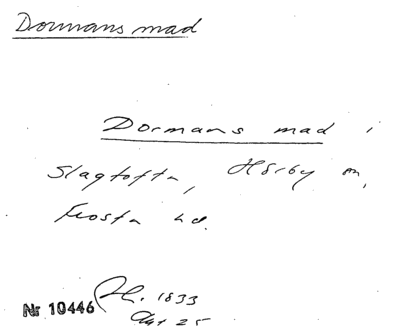 Dormans mad
Dormans mad i
Slagtofta, Hörby sn,
Frosta hd.
1833
Nr 10446
Akt 25